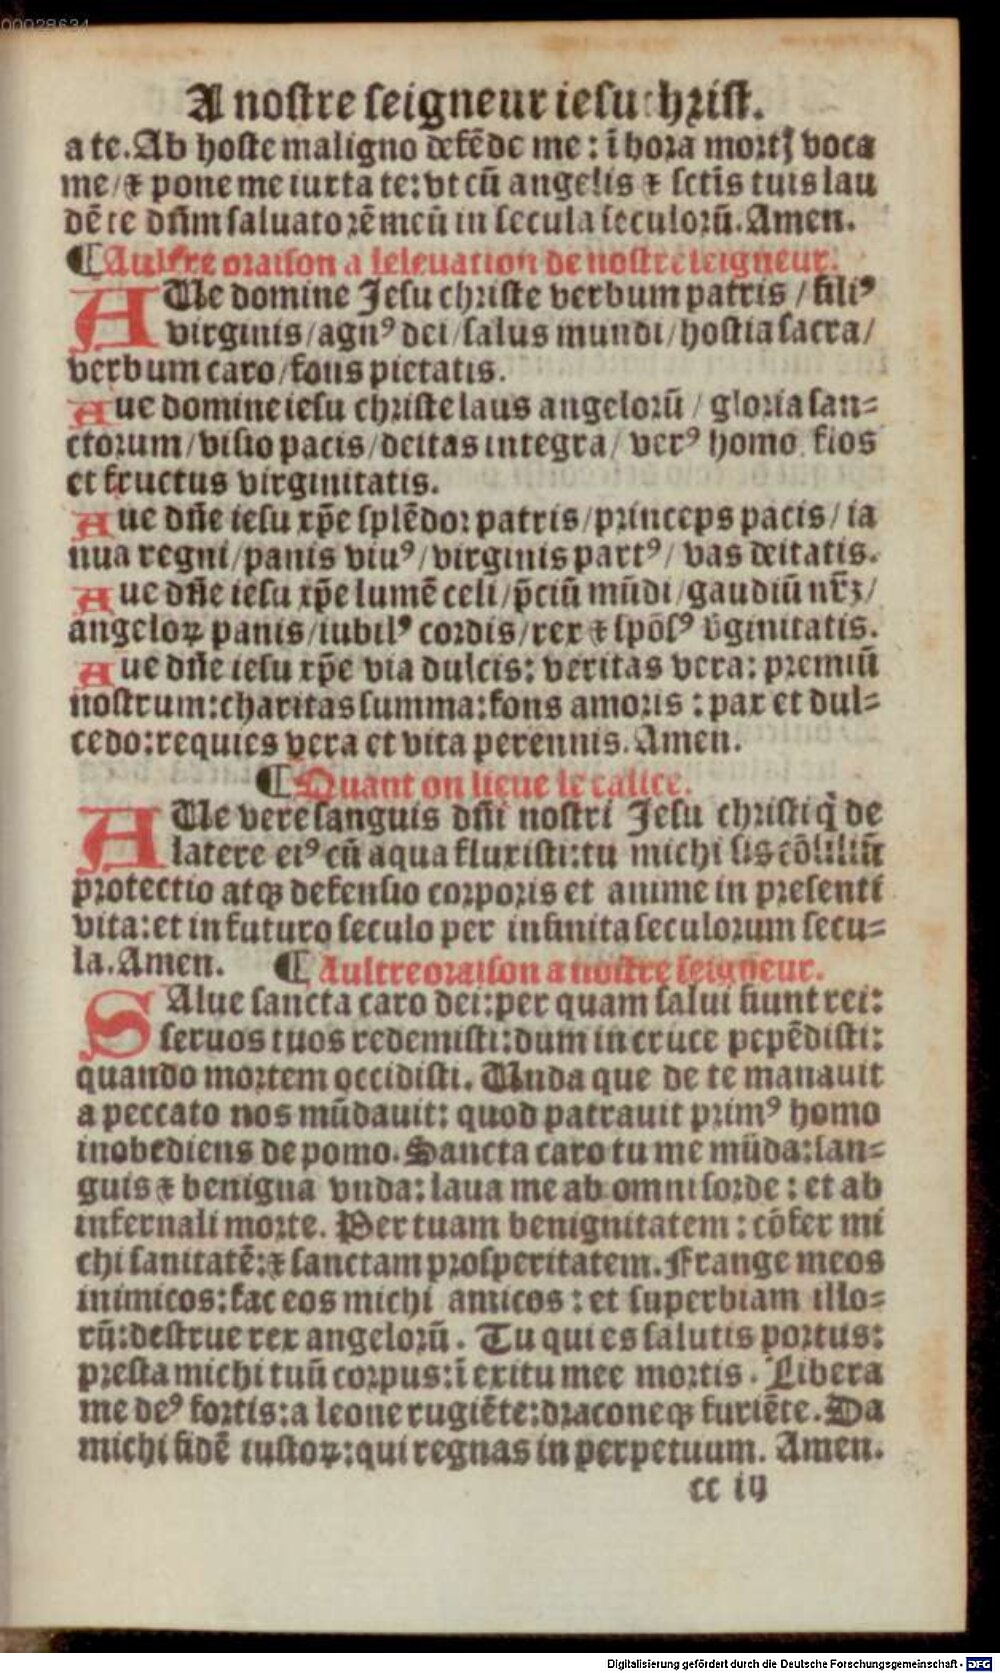 00028634
A nostre seigneur iesuchrist.
a te. Ab hoste maligno defēde me: ī hora mortꝭ voca
me/⁊ pone me iuxta te: vt cū angelis ⁊ sctīs tuis lau
dē te dn̄m saluatorē meū in secula seculorū. Amen.
¶ Aultre oraison a leleuation de nostre seigneur.
AUe domine Jesu christe verbum patris / filiꝰ
virginis/agnꝰ dei/salus mundi/hostia sacra/
verbum caro/fons pietatis.
Aue domine iesu christe laus angelorū / gloria san=
ctorum/visio pacis/deitas integra/ verꝰ homo flos
et fructus virginitatis.
Aue dn̄e iesu xp̄e splēdor patris/princeps pacis/ ia
nua regni/panis viuꝰ/virginis partꝰ/ vas deitatis.
Aue dn̄e iesu xp̄e lumē celi/p̄ciū mūdi/gaudiū nr̄ꝫ/
angeloꝝ panis/iubilꝰ cordis/rex ⁊ spōsꝰ v̄ginitatis.
Aue dn̄e iesu xp̄e via dulcis: veritas vera: premiū
nostrum: charitas summa: fons amoris : pax et dul=
cedo: requies vera et vita perennis. Amen.
¶ Quant on lieue le calice.
AUe vere sanguis dn̄i nostri Jesu christi q̄ de
latere eiꝰ cū aqua fluxisti: tu michi sis cōsiliū
protectio atqꝫ defensio corporis et anime in presenti
vita: et in futuro seculo per infinita seculorum secu=
la. Amen. ¶ Aultre oraison a nostre seigneur.
SAlue sancta caro dei: per quam salui fiunt rei:
seruos tuos redemisti: dum in cruce pepēdisti:
quando mortem occidisti. Unda que de te manauit
a peccato nos mūdauit: quod patrauit primꝰ homo
inobediens de pomo. Sancta caro tu me mūda: san=
guis ⁊ benigna vnda: laua me ab omni sorde : et ab
infernali morte. Per tuam benignitatem : cōfer mi
chi sanitatē: ⁊ sanctam prosperitatem. Frange meos
inimicos: fac eos michi amicos : et superbiam illo=
rū: destrue rex angelorū. Tu qui es salutis portus:
presta michi tuū corpus: ī exitu mee mortis. Libera
me deꝰ fortis: a leone rugiēte: draconeqꝫ furiēte. Da
michi fidē iustoꝝ: qui regnas in perpetuum. Amen.
cc iij
Digitalisierung gefördert durch die Deutsche Forschungsgemeinschaft - DFG